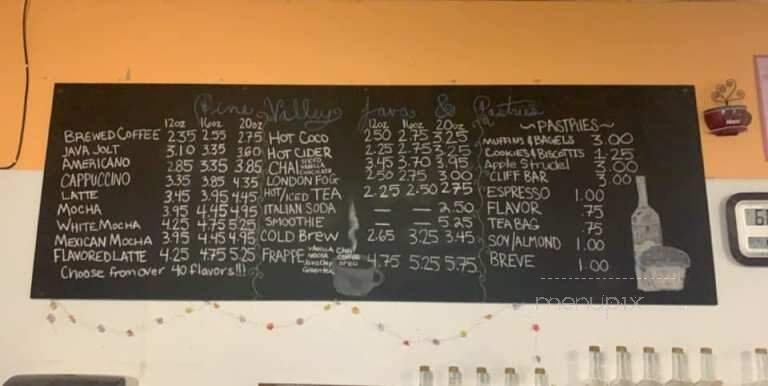 Pine Valley Java & Pastries
12oz 16oz 20oz
BREWED COFFEE 2.35 2.55 2.75
JAVA JOLT 3.10 3.35 3.60
AMERICANO 2.85 3.35 3.85
CAPPUCCINO 3.35 3.85 4.35
LATTE 3.45 3.95 4.45
MOCHA 3.95 4.45 4.95
WHITE MOCHA 4.25 4.75 5.25
MEXICAN MOCHA 3.95 4.45 4.95
FLAVORED LATTE 4.25 4.75 5.25
Choose from over 40 flavors!!!
12oz 16oz 20oz
HOT COCO 2.50 2.75 3.25
HOT CIDER 2.25 2.75 3.25
CHAI SPICED VANILLA CHOCOLATE 3.45 3.70 3.95
LONDON FOG 2.50 2.75 3.00
HOT/ICED TEA 2.25 2.50 2.75
ITALIAN SODA — — 2.50
SMOOTHIE — — 5.25
COLD BREW 2.65 3.25 3.45
FRAPPE 4.75 5.25 5.75
VANILLA CHAI
MOCHA COFFEE
GREEN TEA
~PASTRIES~
MUFFINS & BAGELS 3.00
COOKIES & BISCOTTIS 1.25
Apple Strudel 3.00
CLIFF BAR 3.00
ESPRESSO 1.00
FLAVOR .75
TEA BAG .75
SOY/ALMOND 1.00
BREVE 1.00
menupix